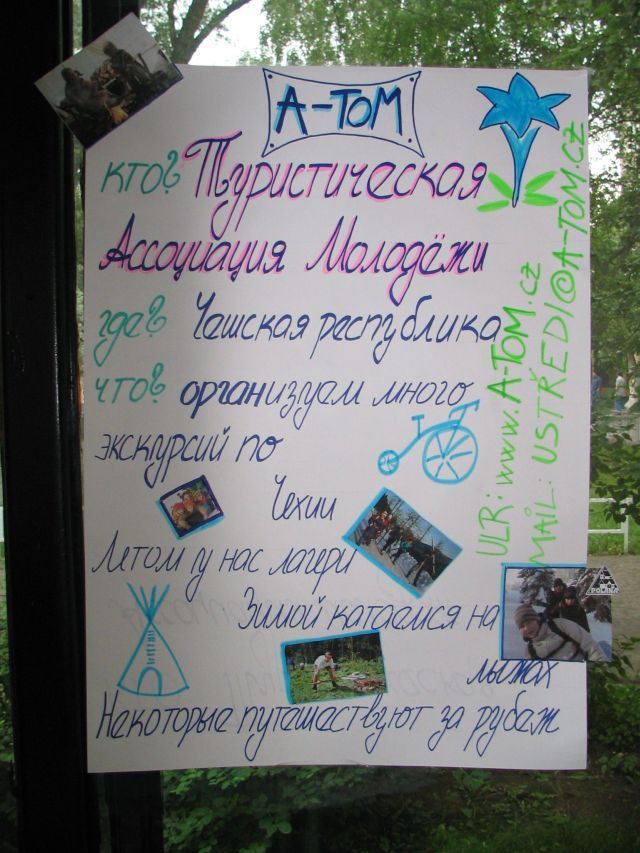 А-ТОМ
кто? Туристическая
Ассоциация Молодёжи
где? Чешская республика
что? организуем много
экскурсий по
Чехии
Летом у нас лагери
Зимой катаемся на
лыжах
Некоторые путешествуют за рубеж
ULR: www.A-TOM.cz
MAIL: USTŘEDI@A-TOM.CZ
POLARIS